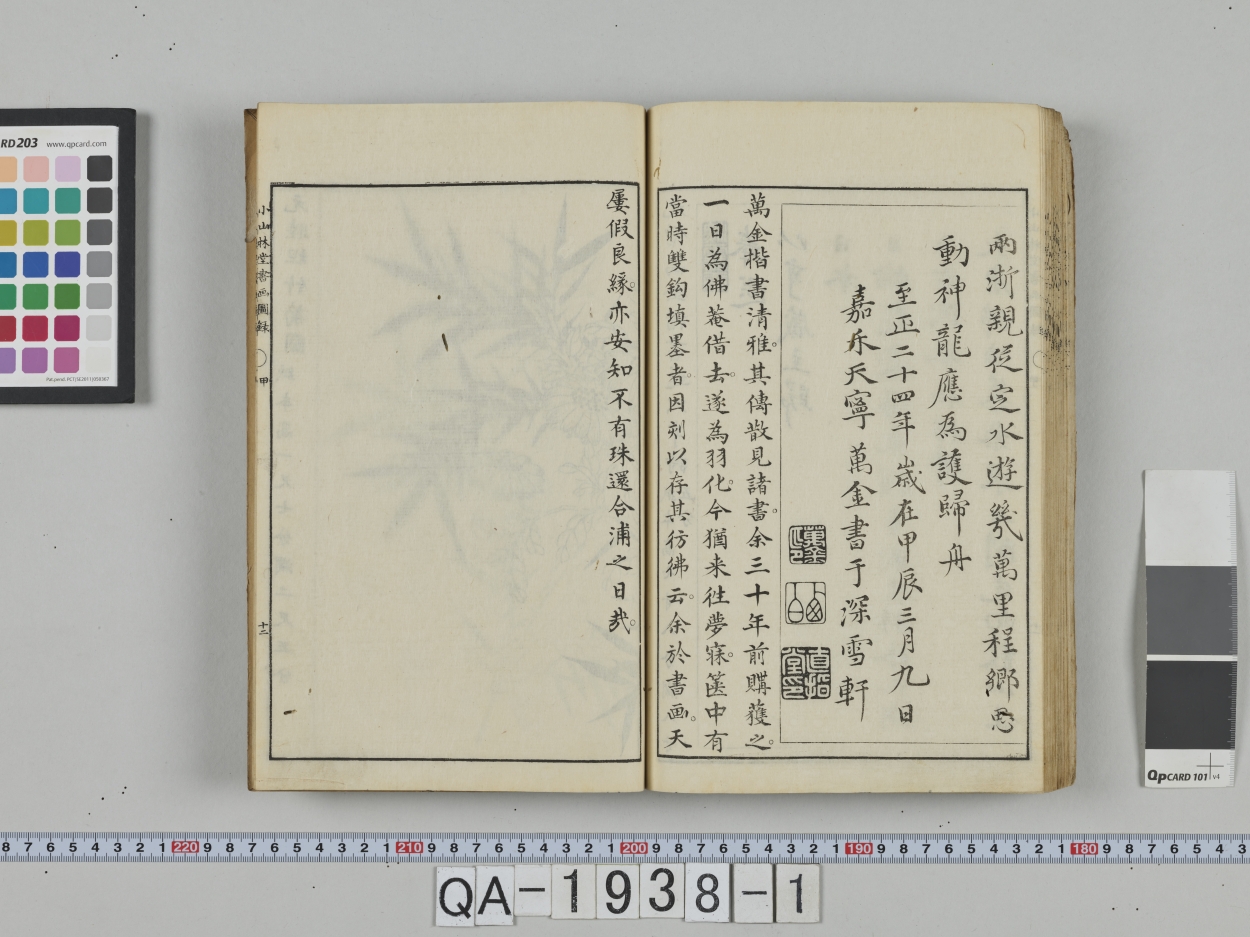 兩浙親從定水遊幾萬里程鄉思
動神龍應為護歸舟
至正二十四年歲在甲辰三月九日
嘉禾天寧萬金書于深雪軒
直指
堂印
萬金楷書清雅。其傳散見諸書。余三十年前購蒦之。
一日為佛菴借去。遂為羽化。今猶来徃夢寐。篋中有
當時雙鈎填墨者。因刻以存其彷彿云。余於書画。天
屢假良緣。亦安知不有珠還合浦之日哉。
小山林堂書画圖録
甲
十二
RD203 www.qpcard.com
QPCARD 101 v4
8 7 6 5 4 3 2 1 220 9 8 7 6 5 4 3 2 1 210 9 8 7 6 5 4 3 2 1 200 9 8 7 6 5 4 3 2 1 190 9 8 7 6 5 4 3 2 1 180 9 8 7 6 5 4 3
QA-1938-1